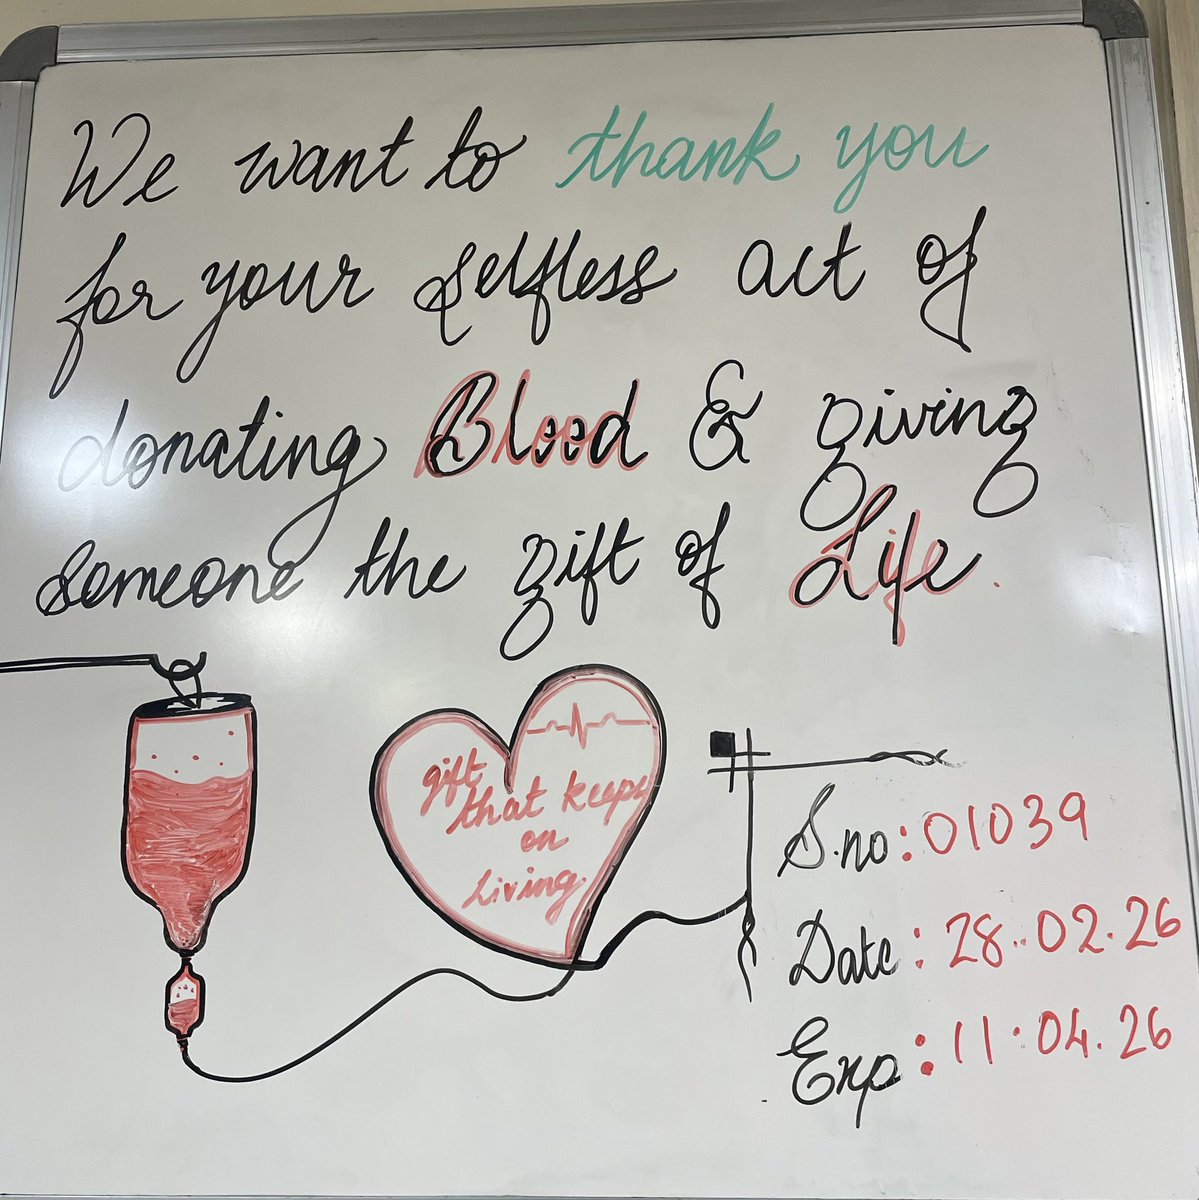 We want to thank you
for your selfless act of
donating Blood & giving
someone the gift of Life.
gift
that keeps
on
Living.
S.no: 01039
Date: 28.02.26
Exp: 11.04.26